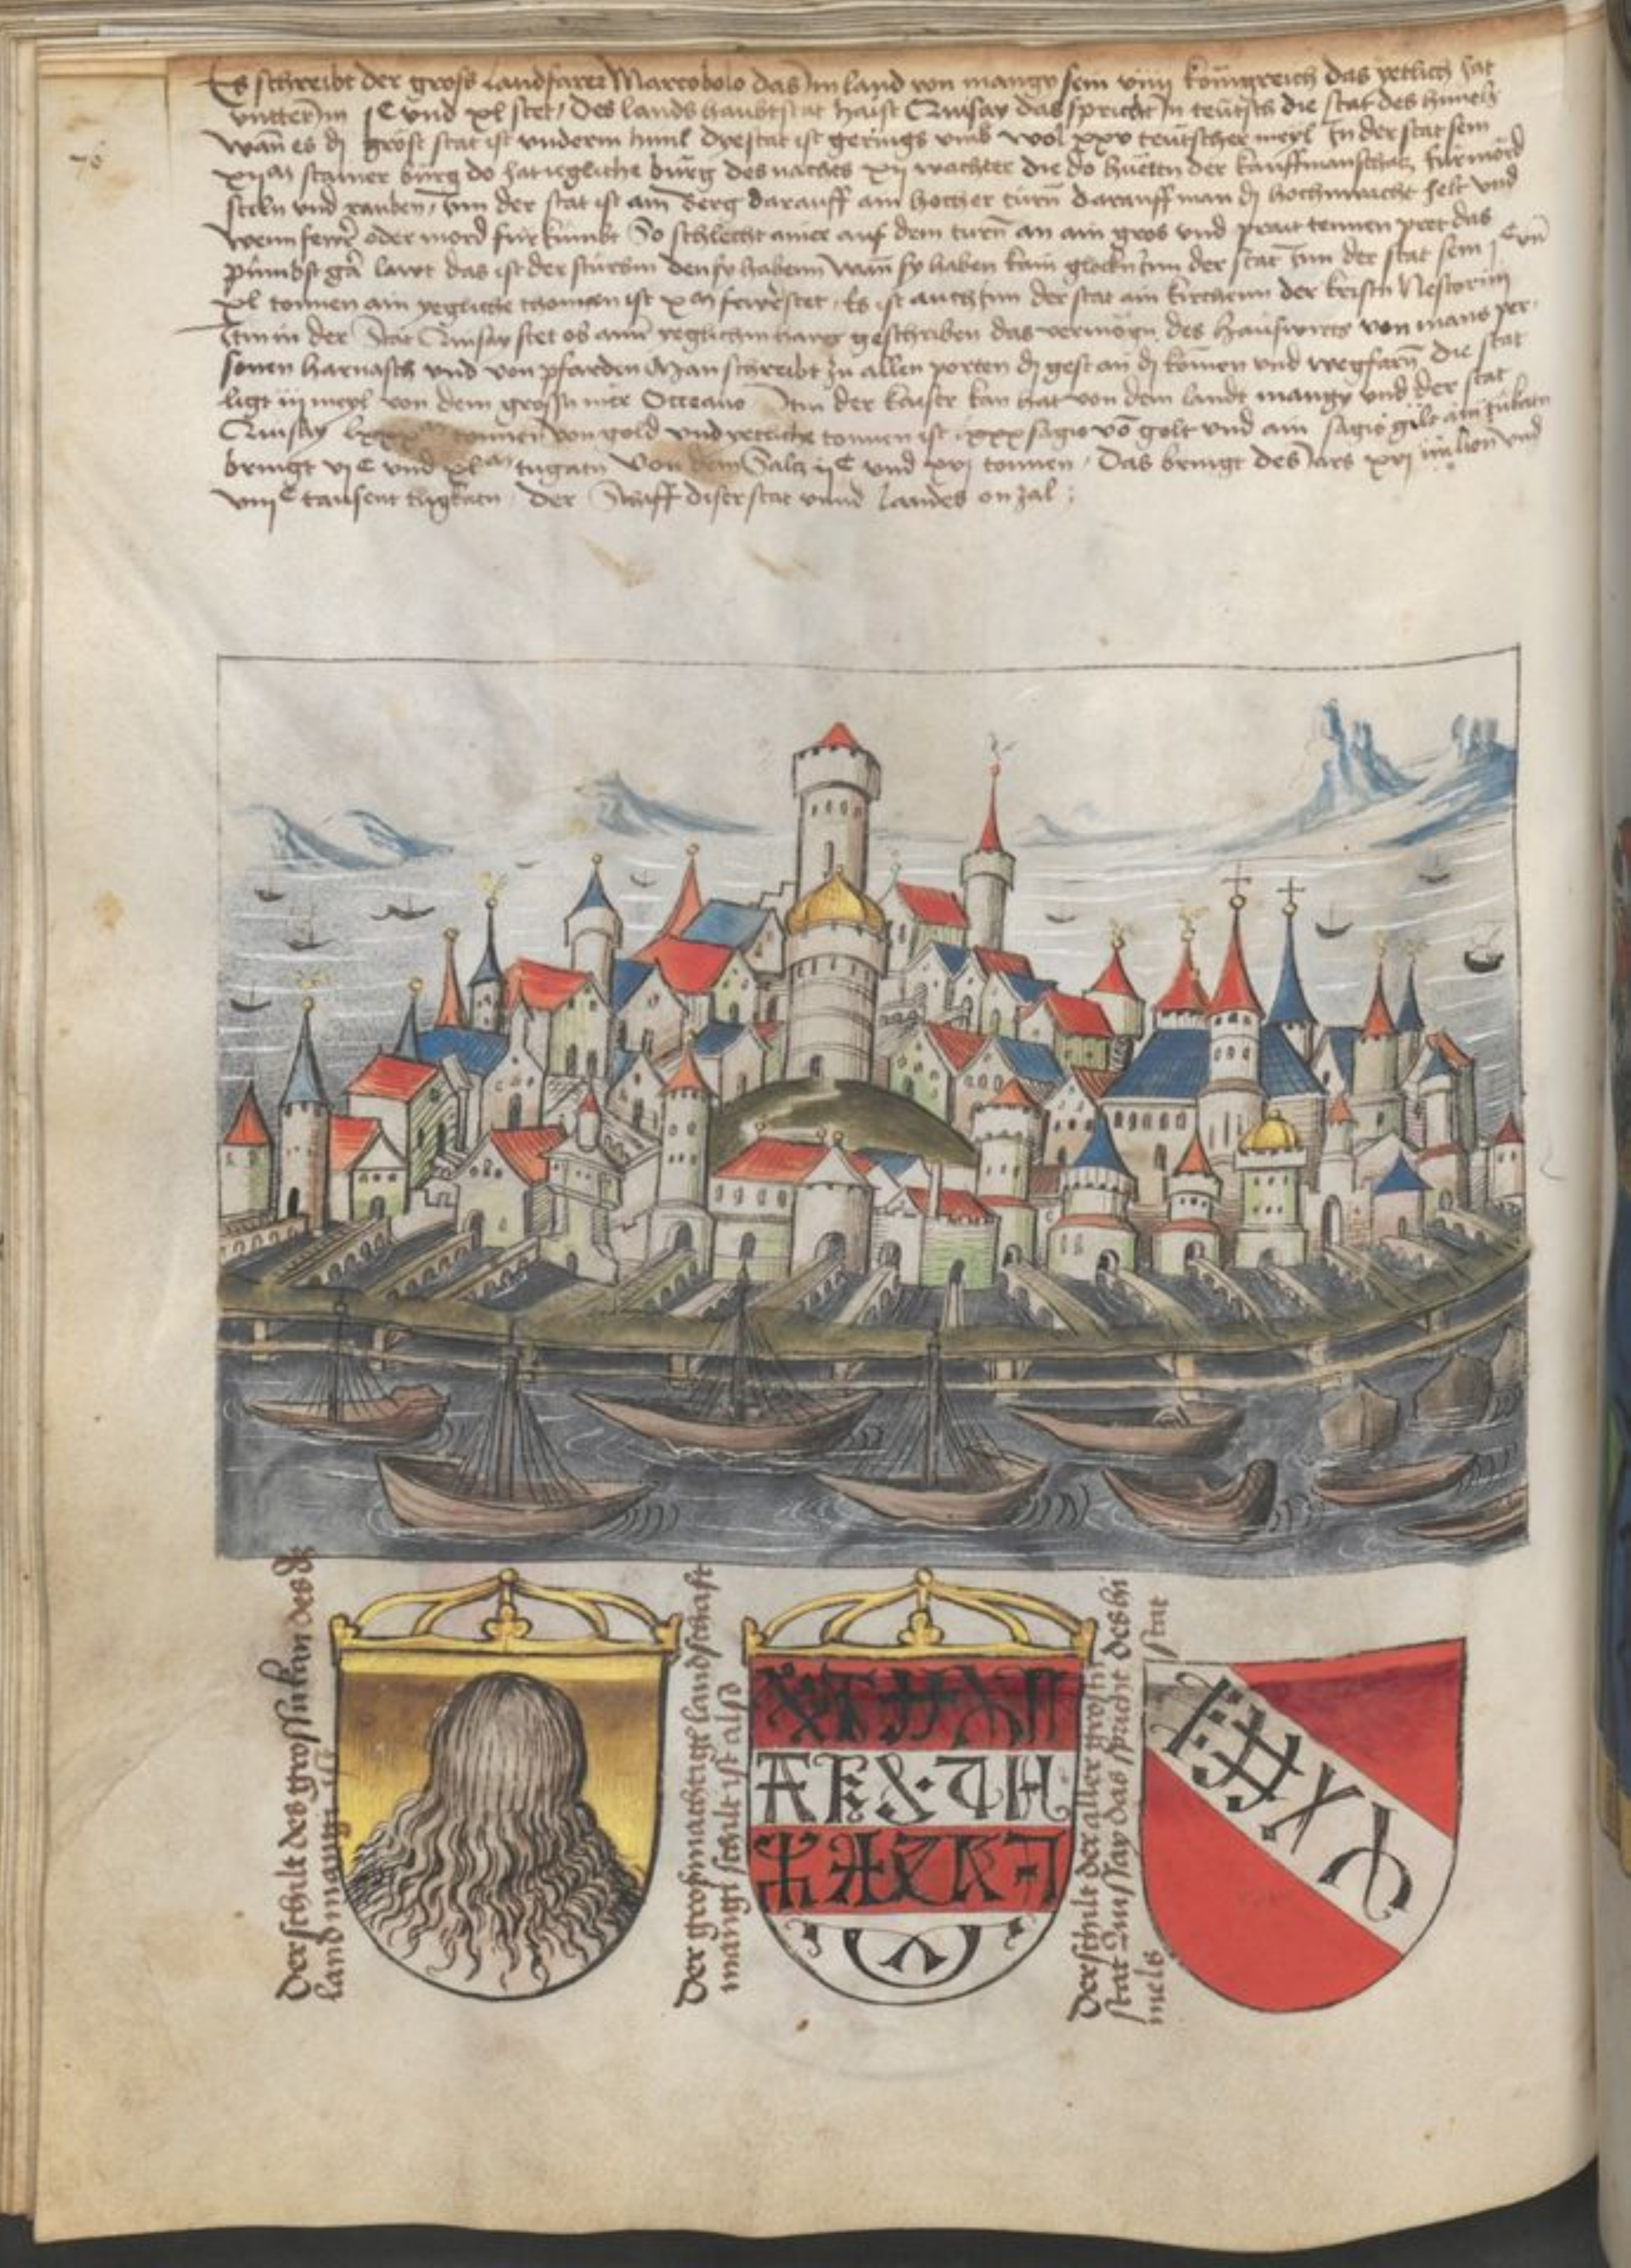 Es schreibt der gross Landfarer Marcobolo das Jm land von mangy sein viiij königreich das yetlich hat
vntter Jm jC vnd xl stet / Des lands haubtstat haist Quinsay das spricht in teutsch die stat des himels
wan̄ es dj gröst stat ist vnderm himl Die stat ist gerings vmb wol xxv teutscher meyl In der stat sein
xijM stainer bürg do hat iegliche bürg des nachts xij wachter die do hüetn der kauffmanschatz für mörd
steln vnd rauben / Jnn der stat ist ain Berg darauff ain hocher turn̄ darauff man dj hochwacht helt vnd
wenn fewr̄ oder mord für kumbt So schlecht ainer auf dem turn̄ an ain gros vnd prait tennen pret das
gar lawt das ist der sturbm den sy habenn wan̄ sy haben kain glockn Jnn der stat Jnn der stat sein jC vn̄
xl tonnen ain yegliche thoman ist xM fewrstet / Es ist auch Jnn der stat ain kirchenn der kristn Nestorinj
Jtm in der Stat Quinsay stet ob aim yeglichm haws geschriben das vermögn des hauswirts von mans per-
sonen harnasch vnd von pfarden Man schreibt zu allen porten dj gest an dj komen vnd wegfarn̄ Die stat
ligt iij meyl von dem grossn mer Occeano Jtm der kaiser kan hat von dem landt mangy vnd der stat
Quinsay tonnen von gold vnd yetliche tonnen ist lxxx sagio vō golt vnd ain sagio gilt ain tukatn
bringt vjC vnd xlM tugatn Von dem Saltz ijC vnd xvj tonnen / Das bringt des Jars xvj milion vnd
viijC tausent tugkatn / der Schiff diser stat vnnd Landes on zal :
76
Der schilt des grossultan des
land mangi ist
Der grosmachtige landschaft
mangi schilt ist alsd
Der schilt der aller grostn
stat Quinssay das spricht des hi
mels stat